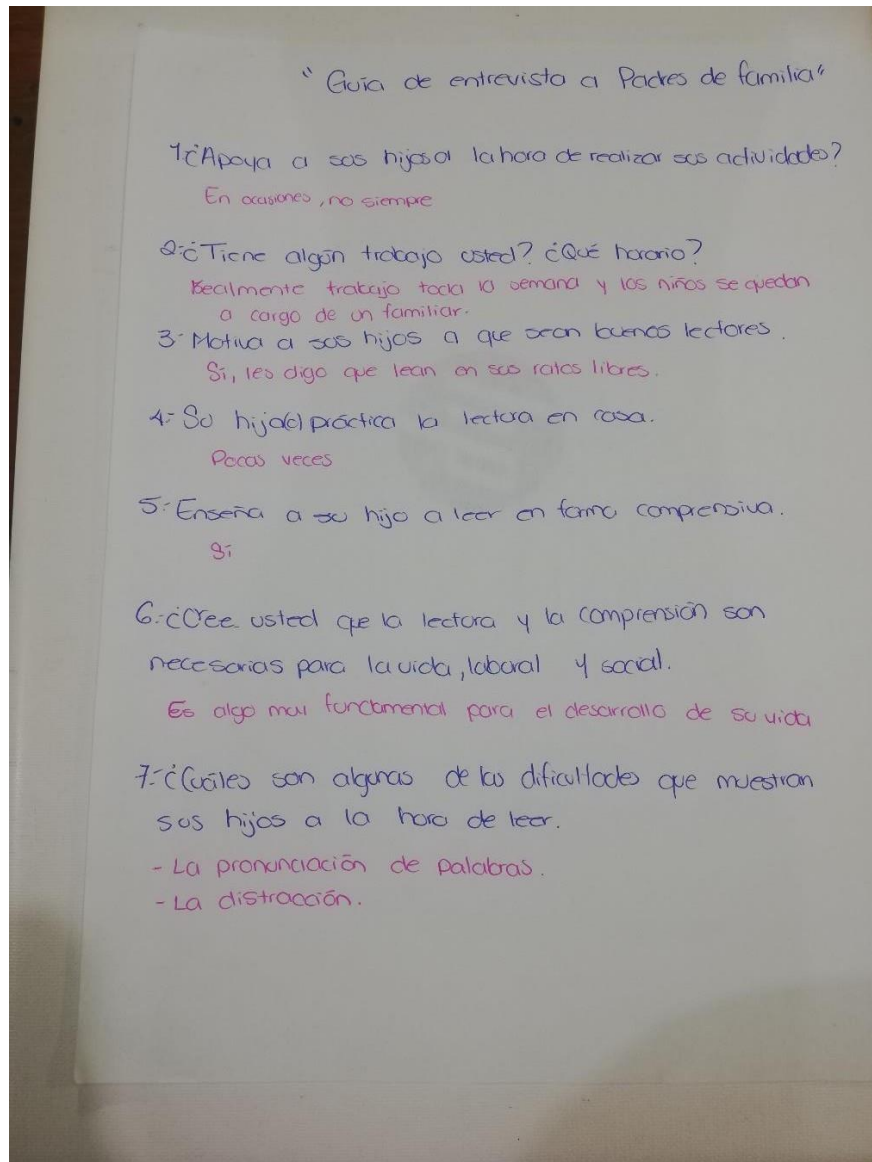 "Guia de entrevista a Padres de familia"
1¿Apoya a sus hijos a la hora de realizar sus actividades?
En ocasiones, no siempre
2-¿Tiene algún trabajo usted? ¿Qué horario?
Realmente trabajo toda la semana y los niños se quedan
a cargo de un familiar.
3- Motiva a sus hijos a que sean buenos lectores.
Si, les digo que lean en sus ratos libres.
4- Su hijo(a) práctica la lectura en casa.
Pocas veces
5- Enseña a su hijo a leer en forma comprensiva.
Si
6-¿Cree usted que la lectura y la comprensión son
necesarias para la vida, laboral y social.
Es algo muy fundamental para el desarrollo de su vida
7-¿Cuáles son algunas de las dificultades que muestran
sus hijos a la hora de leer.
- La pronunciación de palabras.
- La distracción.